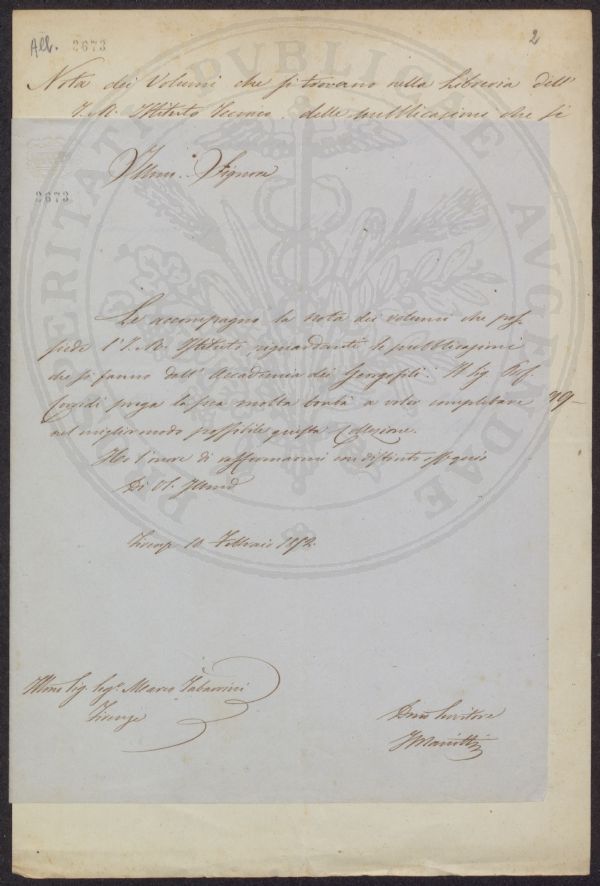 All. 2673
2
Nota dei Volumi che si trovano nella Libreria dell'
I. R. Istituto Tecnico, delle pubblicazioni che si
2673
Illmo. Signore
Le accompagno la nota dei volumi che pos-
siede l'I. R. Istituto, riguardanti le pubblicazioni
che si fanno dall' Accademia dei Georgofili. Il Sig. Prof.
Corridi prega la sua molta bontà a voler completare
nel miglior modo possibile questa Collezione.
Ho l'onore di raffermarmi con distinto ossequio
Di VS. Illma
Firenze 10 Febbraio
Illmo Sig. Segr. Marco Tabarrini
Firenze
Devmo Servitore
PROSPERITATI PVBLICAE AVGENDAE